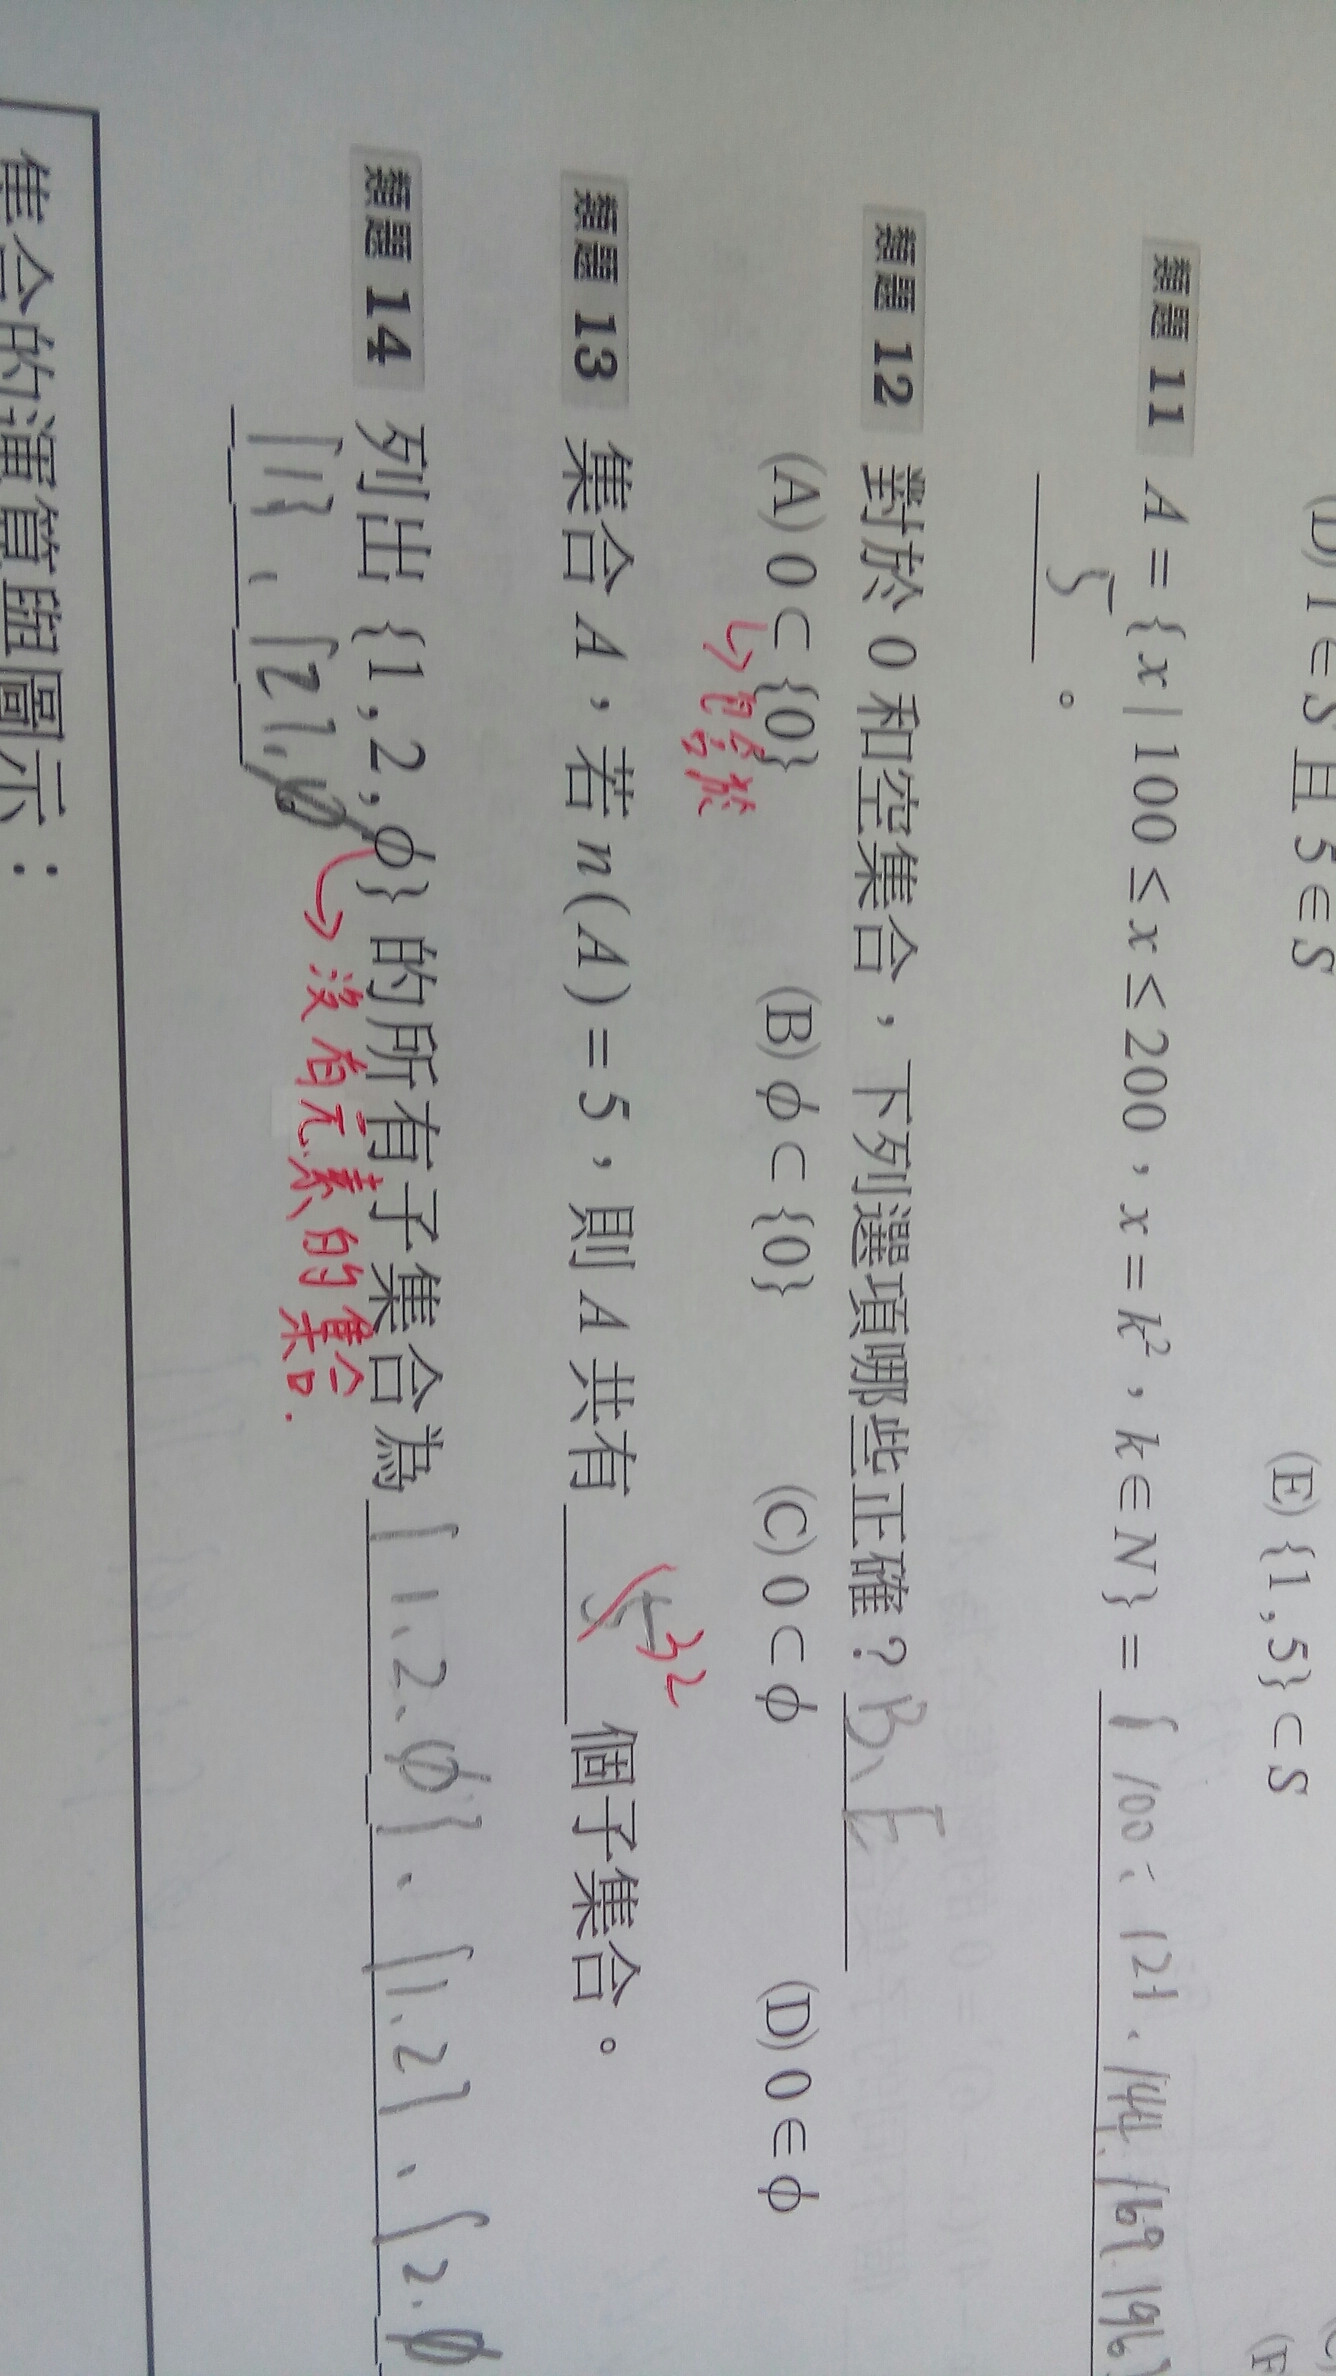 (D) 1∈S 且 5∈S (E) {1,5}⊂S (F
類題 11 A={x|100≤x≤200,x=k²,k∈N}= { 100、121、144、169、196
}
。
類題 12 對於 0 和空集合,下列選項哪些正確? B、E
(A) 0⊂{0} (B) ϕ⊂{0} (C) 0⊂ϕ (D) 0∈ϕ
↳包含於
類題 13 集合 A,若 n(A)=5,則 A 共有 5 32 個子集合。
類題 14 列出 {1,2,ϕ} 的所有子集合為 {1、2、ϕ}、{1、2}、{2、ϕ
↳沒有元素的集合.
{1}、{2}、ϕ
集合的運算與圖示: